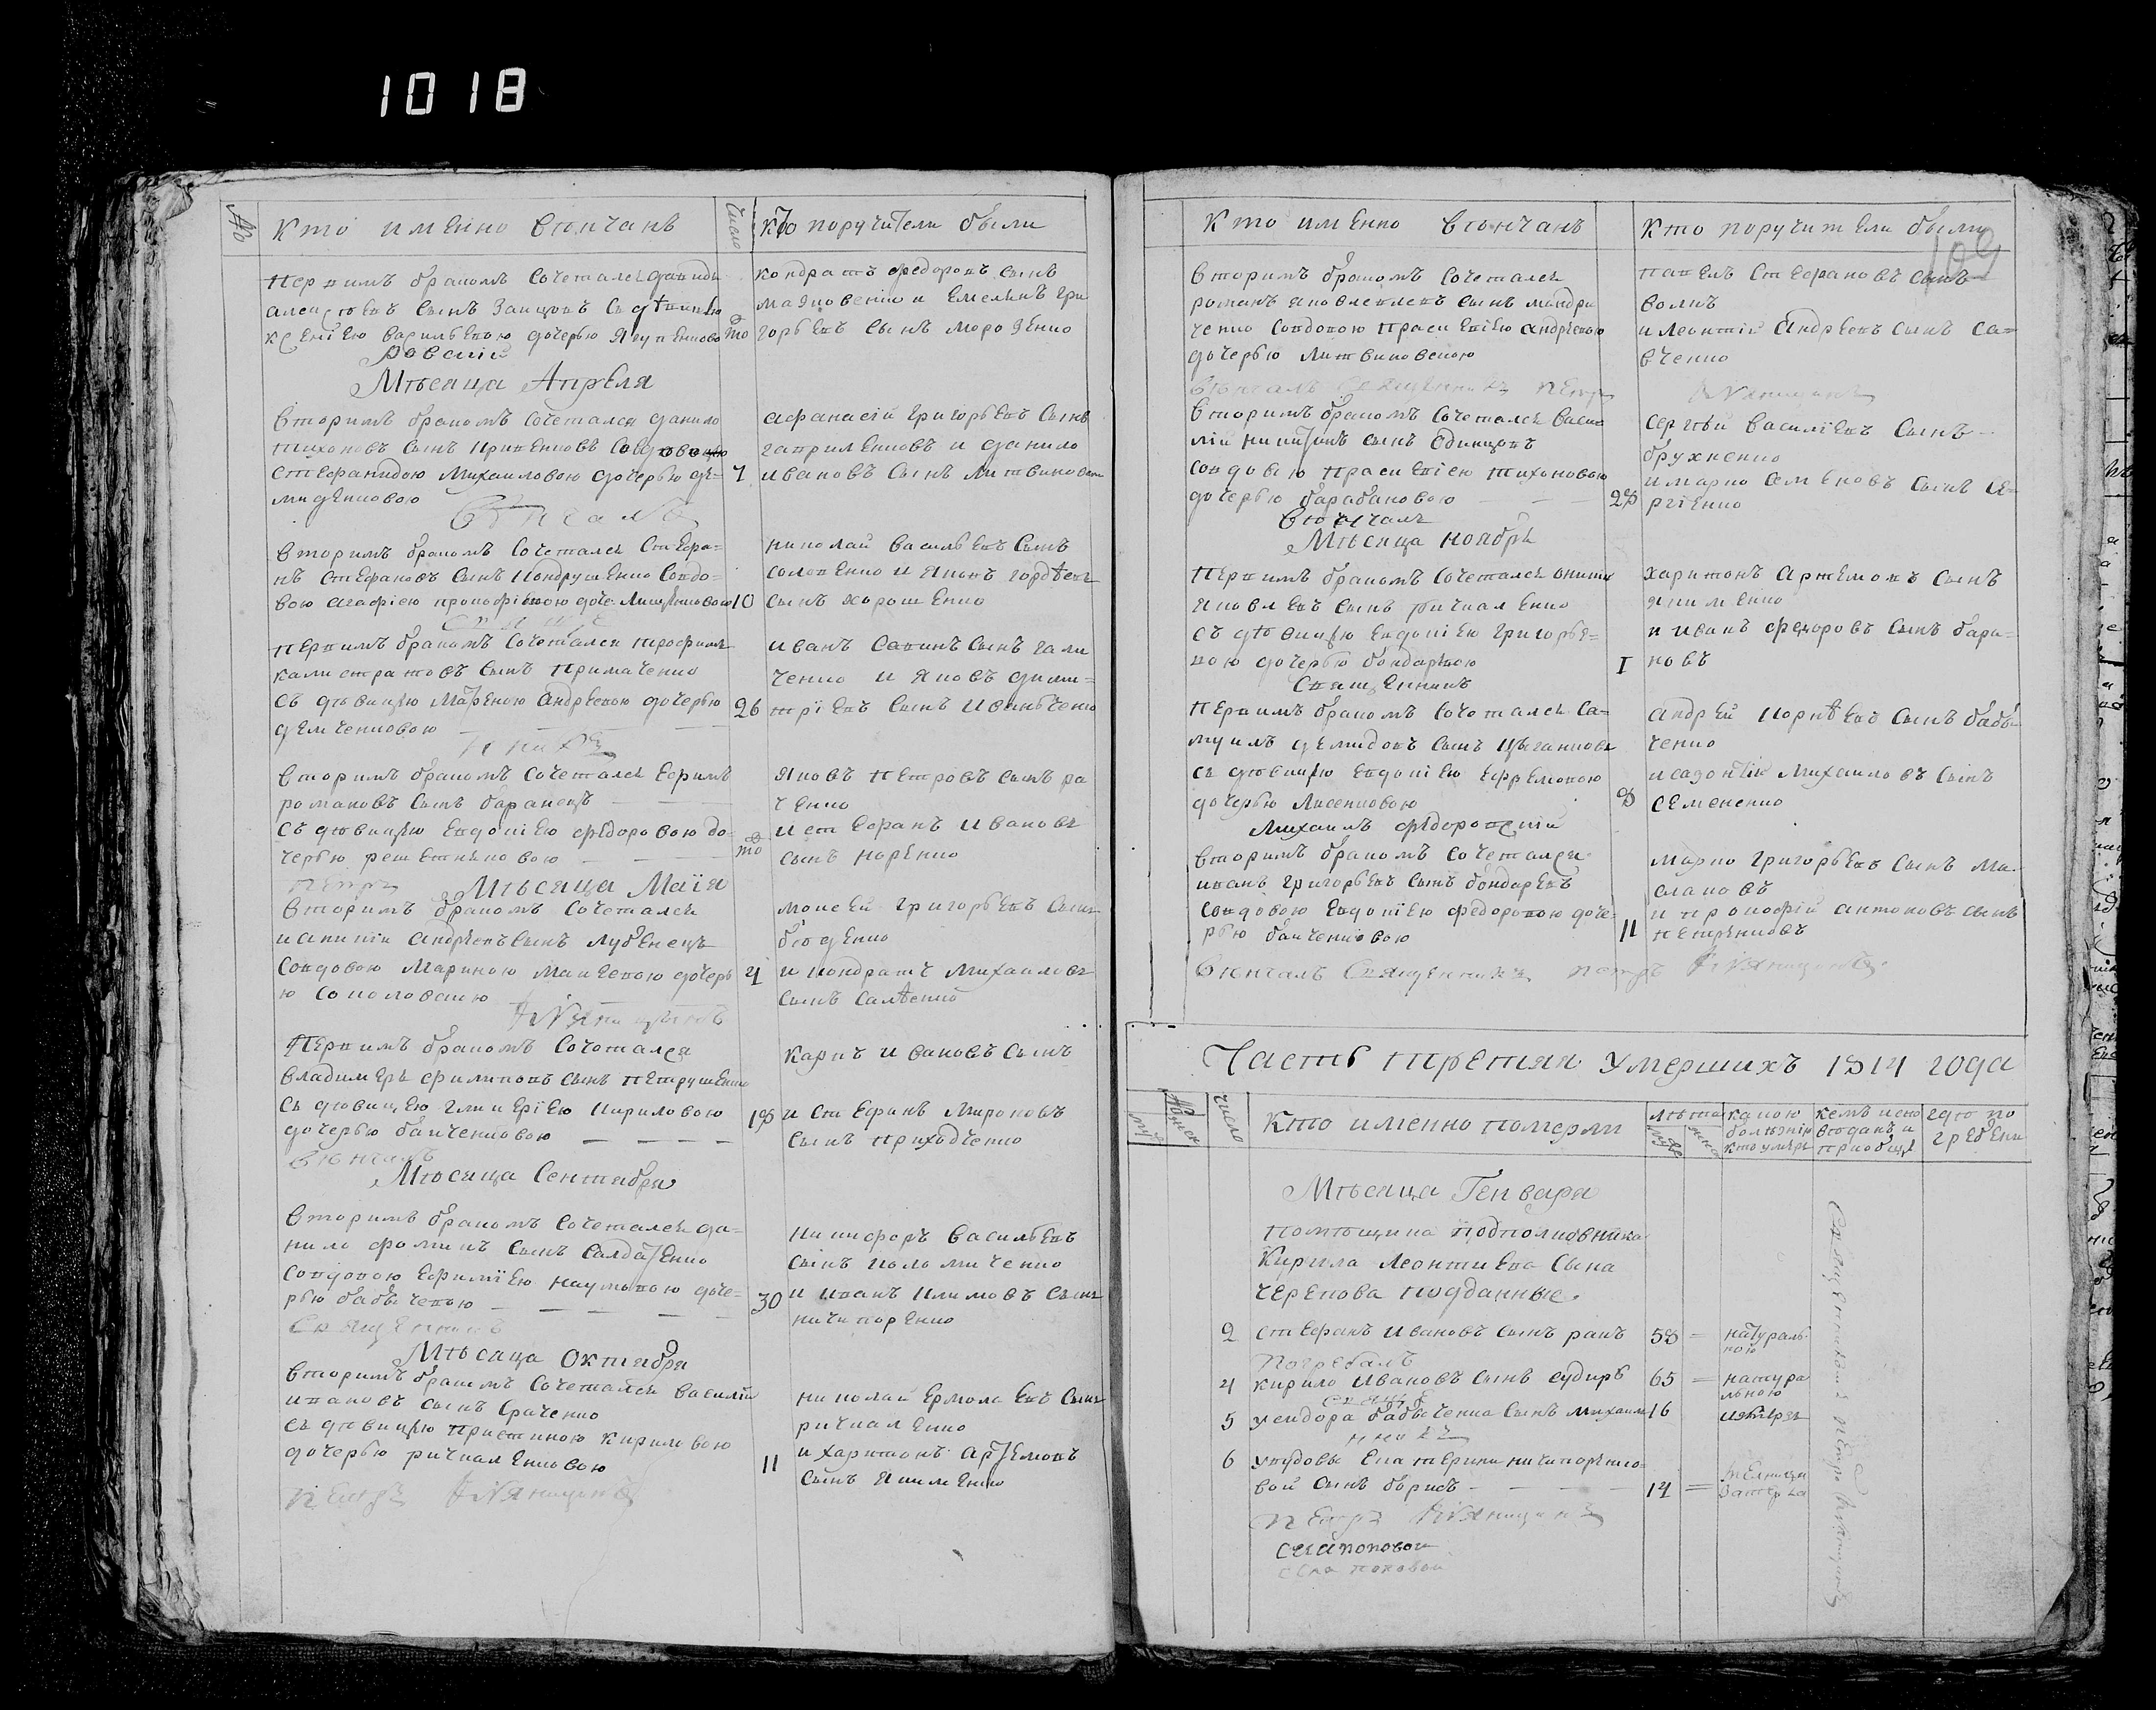 1018
№
Кто именно вѣнчанъ
Число
Кто поручители были
Первимъ бракомъ сочетался давидъ
алексѣевъ сынъ Заицовъ съ дѣвицею
ксениею васильевою дочерью Якупенково
то
кондратъ федоровъ сынъ
и Емельянъ гри
горьевъ сынъ морозенко
Мѣсяца Апреля
вторимъ бракомъ сочетался данило
тихоновъ сынъ Крипенковъ
стефанидою михаиловою дочерью де-
миденковою
7
афанасій григорьевъ сынъ
гаприленковъ и данило
ивановъ сынъ литвиновъ
вѣнчалъ
вторимъ бракомъ сочетался стефа-
нъ стефановъ сынъ Кондрушенко совдо-
вою агафіею прокофіевою доче лищенковою
10
николай васильевъ сынъ
солопенко и Яковъ гордѣевъ
сынъ хорошенко
первимъ бракомъ сочетался трофимъ
калистратовъ сынъ примаченко
съ дѣвицею Марѳеною андреевою дочерью
демченковою
26
иванъ савинъ сынъ гали
ченко и Яковъ дими-
тріевъ сынъ Иваньченко
вторимъ бракомъ сочетался Ефимъ
романовъ сынъ баранецъ
съ дѣвицею Евдокіею федоровою до-
черью решетняковою
то
Яковъ петровъ сынъ ра
ченко
и стефанъ ивановъ
сынъ коренко
петръ
Мѣсяца Маія
вторимъ бракомъ сочетался
іакиній андреевъ сынъ лубенецъ
совдовою Мариною Матвевою дочерь
ю соколовскою
4
моисей григорьевъ сынъ
бюденко
и кондратъ михаиловъ
сынъ салѣенко
Первимъ бракомъ сочетался
владимеръ филиповъ сынъ петрушенко
съ дѣвицею гликеріею кириловою
дочерью байченковою
18
карпъ ивановъ сынъ
и стефанъ мироновъ
сынъ приходченко
вѣнчалъ
Мѣсяца Сентября
вторимъ бракомъ сочетался да-
нило фоминъ сынъ Салдатенко
совдовою Ефиміею наумовою доче-
рью бабичевою
30
никифоръ васильевъ
сынъ коломиченко
и иванъ климовъ сынъ
ничипоренко
священникъ
Мѣсяца Октября
вторимъ бракомъ сочетался василій
ивановъ сынъ Сраченко
съ дѣвицею Христиною кириловою
дочерью ричкаленковою
11
николай Ермолаевъ сынъ
ричкаленко
и харитонъ артемовъ
сынъ Якименко
петръ
Кто именно вѣнчанъ
Кто поручители были
109
вторимъ бракомъ сочетался
романъ яковлевъ сынъ мандри
ченко совдовою праскевіею андреевою
дочерью литвиновскою
павелъ стефановъ сынъ
волкъ
и леонтій андреевъ сынъ са-
вченко
вѣнчалъ священникъ петръ
вторимъ бракомъ сочетался васи
лій никитинъ сынъ Одинцовъ
совдовою праскевіею тихоновою
дочерью барабановою
28
сергѣй василіевъ сынъ
брухненко
и марко семеновъ сынъ се-
ргіенко
вѣнчалъ
Мѣсяца ноября
первимъ бракомъ сочетался
яковлевъ сынъ ричкаленко
съ дѣвицею Евдокіею григорье-
вою дочерью бондаревою
1
харитонъ артемовъ сынъ
якименко
и иванъ федоровъ сынъ бара-
новъ
священникъ
первимъ бракомъ сочетался са-
муилъ демидовъ сынъ цыганковъ
съ дѣвицею Евдокіею Ефремовою
дочерью лисенковою
8
андрей корнѣевъ сынъ бабы-
ченко
и савонтій михаиловъ сынъ
семененко
Михаилъ федоровскій
вторимъ бракомъ сочетался
иванъ григорьевъ сынъ бондаревъ
совдовою Евдокіею федоровою доче-
рью байченковою
11
марко григорьевъ сынъ ма-
слаковъ
и прокофій антоновъ сынъ
петренковъ
вѣнчалъ священникъ петръ
Часть третия умершихъ 1814 года
Число
Кто именно померли
лѣта
какою
болѣзнію
кто умеръ
кемъ испо
вѣданъ и
приобщ
гдѣ по
гребени
Мѣсяца Генваря
помѣщика подполковника
Кирила Леонтиева Сына
Черенова подданные.
2 стефанъ ивановъ сынъ ракъ 58 натураль
ною
погребалъ
4 кирило ивановъ сынъ судиръ 65 натура
льною
5 уеидора бабыченка сынъ михаилъ 16
6 увдовы Екатерини ничипоренко-
вой сынъ борисъ 14
петръ
села поповой
села поповой